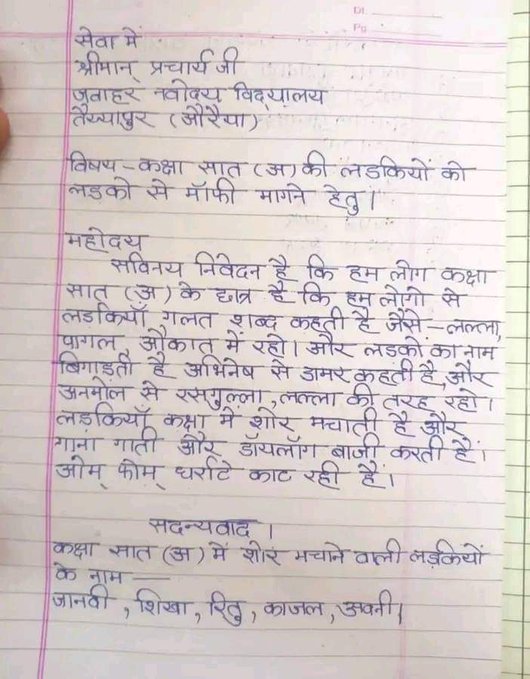 DT
Pg
सेवा में
श्रीमान् प्रचार्य जी
जुवाहर नवोदय विदयालय
तैय्यापुर (औरैया)
विषय - कक्षा सात (अ) की लडकियों को
लडको से मॉफी मागने हेतु।
महोदय
सविनय निवेदन है कि हम लोग कक्षा
सात (अ) के छात्र है कि हम लोगो से
लडकियाँ गलत शब्द कहती है जैसे - लल्ला,
पागल, औकात में रहो। और लडकों का नाम
बिगाडती है अभिनेष से डामर कहती है, और
अनमोल से रसगुल्ला, लल्ला की तरह रहो।
लडकियाँ कक्षा में शोर मचाती है और
गाना गाती और डॉयलॉग बाजी करती हैं।
ओम् फोम् धर्राटे काट रही हैं।
सदन्यवाद।
कक्षा सात (अ) में शोर मचाने वाली लड़कियों
के नाम —
जानवी, शिखा, रितु, काजल, अवनी।